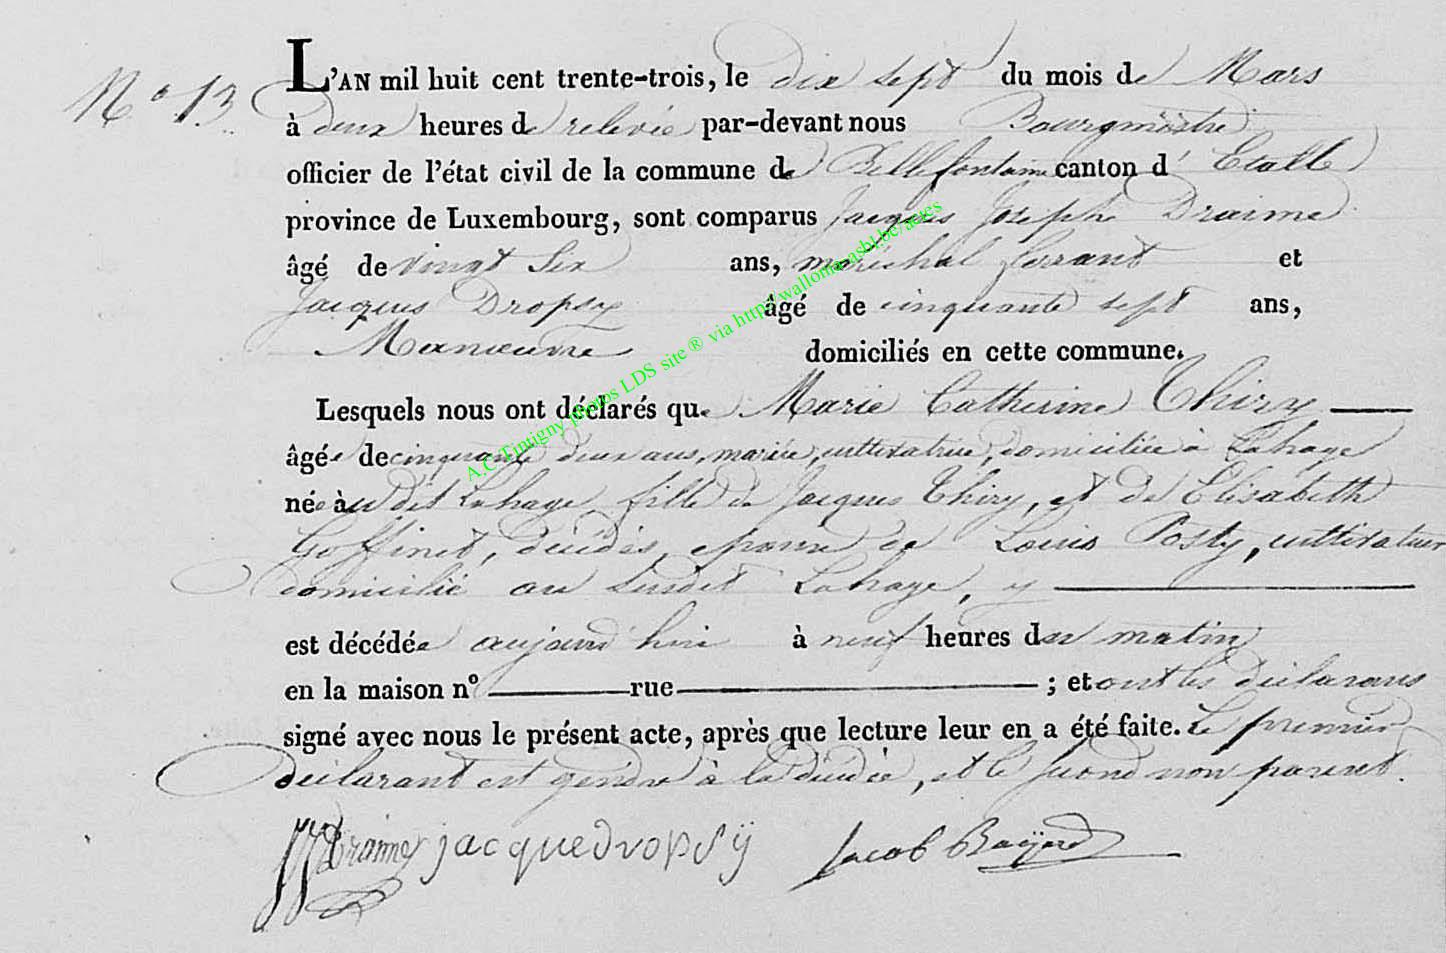 N° 13
L'AN mil huit cent trente-trois, le dix sept du mois de Mars
à deux heures de relevée par-devant nous Bourgmestre
officier de l'état civil de la commune de Bellefontaine canton d' Etalle
province de Luxembourg, sont comparus Jacques Joseph Draime
âgé de vingt Six ans, maréchal ferrant et
Jacques Dropsy âgé de cinquante sept ans,
Manœuvre domiciliés en cette commune.
Lesquels nous ont déclarés que Marie Catherine Thiry
âgée de cinquante deux ans, mariée, cultivatrice, domiciliée à Lahage
née au dit Lahage, fille de Jacques Thiry, et de Elisabeth
Goffinet, décédés, epouse de Louis Posty, cultivateur
domicilié au Susdit Lahage, y
est décédée aujourd'hui à neuf heures du matin
en la maison n° rue ; et ont les déclarans
signé avec nous le présent acte, après que lecture leur en a été faite. Le premier
déclarant est gendre à la décédée, et le second non parent.
JJ Draime jacque dropsÿ Jacob Baÿard
A.C. Tintigny photos LDS site ® via http://wallonia-asbl.be/actes